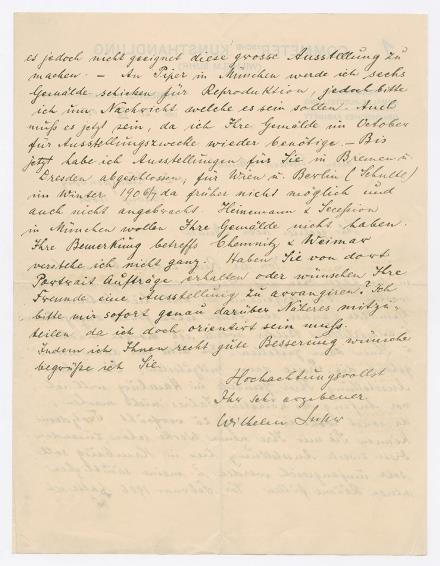 es jedoch nicht geeignet diese grosse Ausstellung zu
machen. — An Piper in München werde ich sechs
Gemälde schicken für Reproduktion, jedoch bitte
ich um Nachricht welche es sein sollen. Auch
muß es jetzt sein, da ich Ihre Gemälde im October
für Ausstellungszwecke wieder benötige. — Bis
jetzt habe ich Ausstellungen für Sie in Bremen u.
Dresden abgeschlossen, für Wien u. Berlin (Schulte)
im Winter 1906/7 da früher nicht möglich und
auch nicht angebracht. Heinemann & Secession
in München wollen Ihre Gemälde nicht haben.
Ihre Bemerkung betreffs Chemnitz & Weimar
verstehe ich nicht ganz. Haben Sie von dort
Portrait Aufträge erhalten oder wünschen Ihre
Freunde eine Ausstellung zu arrangiren? Ich
bitte mir sofort genau darüber Näheres mitzu-
teilen da ich doch orientirt sein muß.
Indem ich Ihnen recht gute Besserung wünsche
begrüße ich Sie
Hochachtungsvollst
Ihr sehr ergebener
Wilhelm